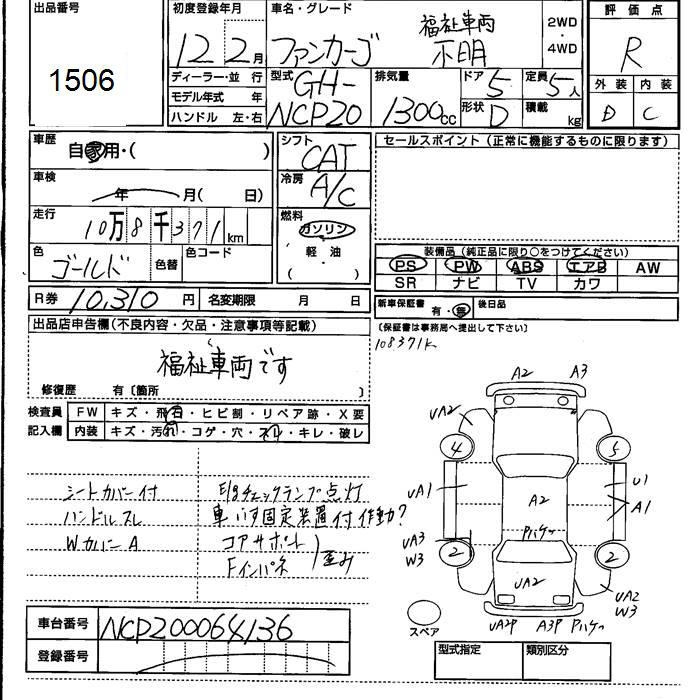 出品番号 初度登録年月 車名・グレード 評価点
1506 12 2月 ファンカーゴ 福祉車両 不明 2WD・4WD R
ディーラー・並行 型式 排気量 ドア 5 定員 5人 外装 内装
モデル年式 年 GH- 1300cc 形状 D 積載 kg D C
ハンドル 左・右 NCP20
車歴 自家用・( ) シフト CAT セールスポイント (正常に機能するものに限ります)
車検 年 月( 日) 冷房 A/C
走行 10万8千371km 燃料 ガソリン
色 ゴールド 色替 色コード 軽油 ( ・ )
装備品 (純正品に限り○をつけてください)
PS PW ABS エアB AW
SR ナビ TV カワ
R券 10,310円 名変期限 月 日 新車保証書 有・無 後日品
(保証書は事務局へ提出して下さい)
出品店申告欄(不良内容・欠品・注意事項等記載) 108371K
福祉車両です
修復歴 有〔箇所 〕
検査員 FW キズ・飛石・ヒビ割・リペア跡・X要
記入欄 内装 キズ・汚れ・コゲ・穴・ネ・キレ・破レ
シートカバー付 E/gチェックランプ点灯
ハンドルスレ 車いす固定装置付 作動?
WカバーA コアサポート
Fインパネ 歪み
A2 A3
UA2
4 5
UA1 A2 U1
A1
UA3 Pハケッ
W3 2 2
UA2 UA2
W3
スペア UA2P A3P Pハケッ
車台番号 NCP200064136
登録番号
型式指定 類別区分